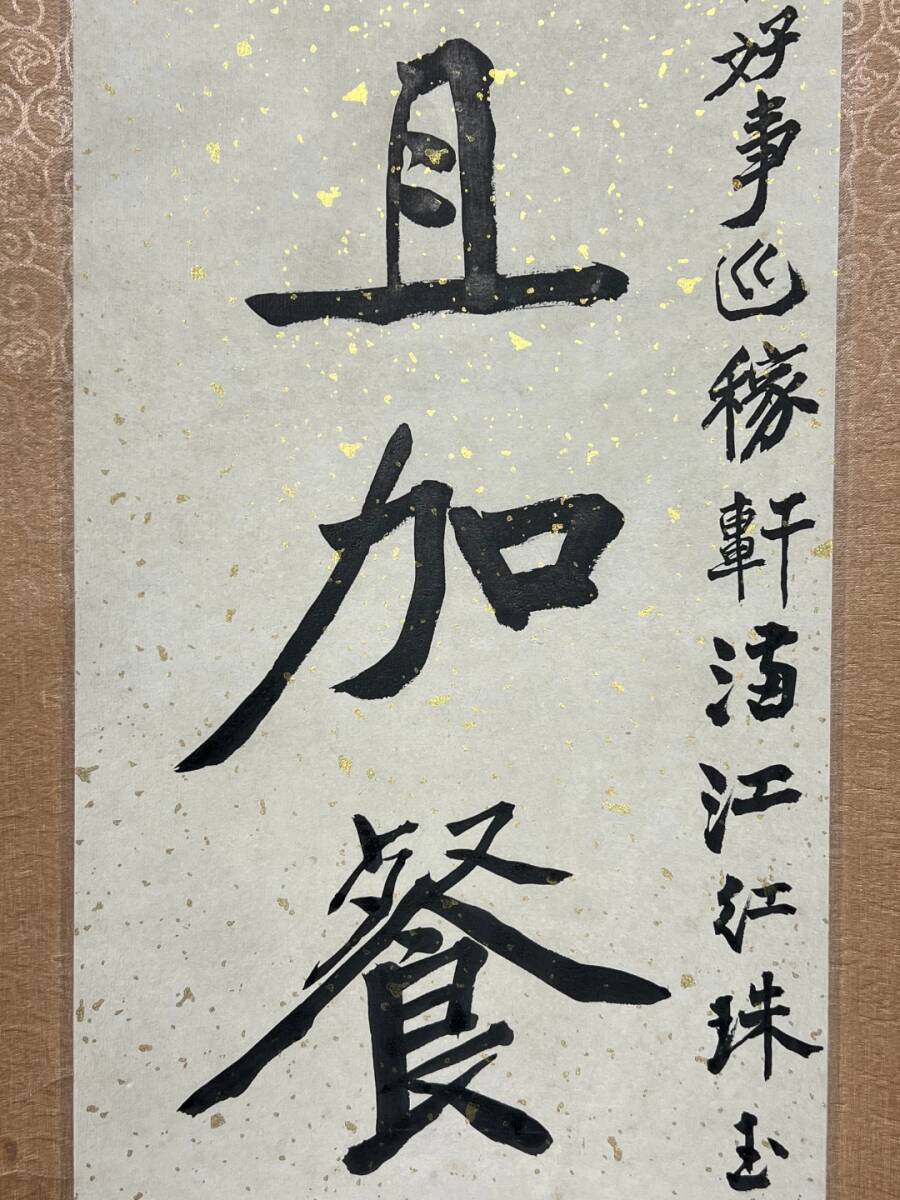 好事巡稼軒滿江紅珠玉
且加餐